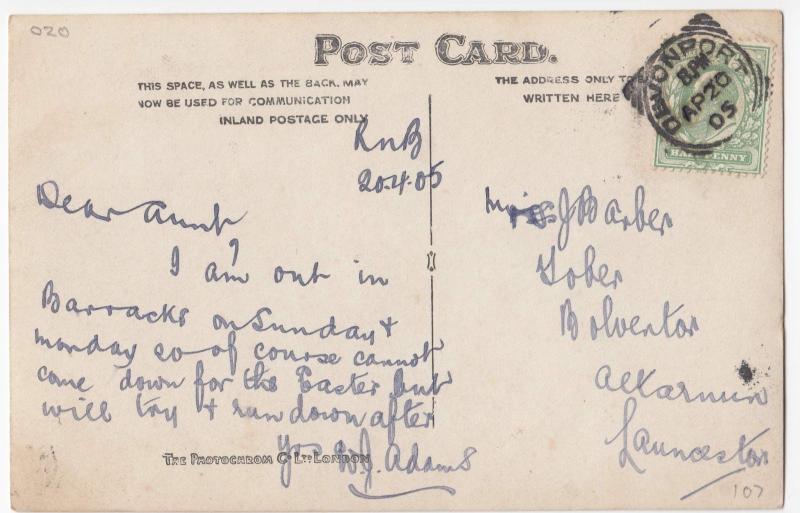 020
POST CARD.
THIS SPACE, AS WELL AS THE BACK, MAY
NOW BE USED FOR COMMUNICATION
INLAND POSTAGE ONLY
THE ADDRESS ONLY TO BE
WRITTEN HERE
DEVONPORT
8 PM
AP 20
05
HALFPENNY
RNB
20.4.05
Dear Aunt
I am out in
Barracks on Sunday +
Monday so of course cannot
come down for the Easter but
will try + run down after
Yrs W.J. Adams
THE PHOTOCHROM Co. LTD. LONDON
J Barber
Tober
Bolventor
Altarnun
Launceston
107